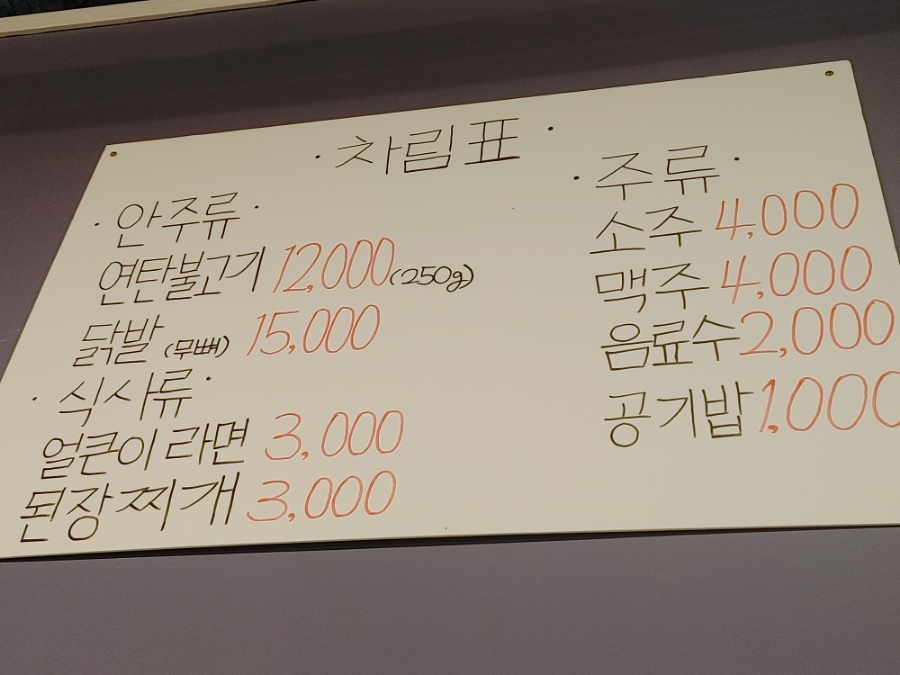 · 차림표 ·
· 안주류 ·
연탄불고기 12,000(250g)
닭발 (무뼈) 15,000
· 식사류 ·
얼큰이라면 3,000
된장찌개 3,000
· 주류 ·
소주 4,000
맥주 4,000
음료수 2,000
공기밥 1,000